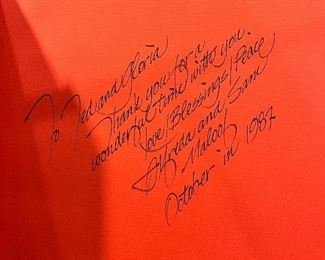 To Ted and Gloria
Thank you for a
wonderful time with you.
Love/Blessings/Peace
Alfreda and Sam
Maloof
October in 1987